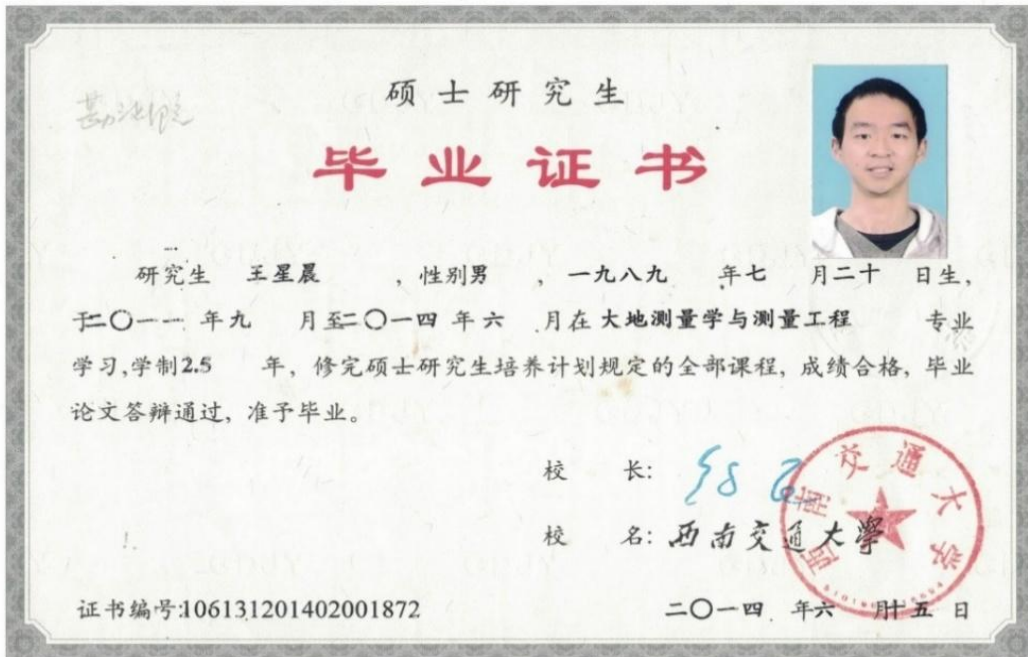 硕士研究生
毕业证书
研究生 王星晨 , 性别男 , 一九八九 年七 月二十 日生,
于二〇一一 年九 月至二〇一四 年六 月在 大地测量学与测量工程 专业
学习,学制2.5 年, 修完硕士研究生培养计划规定的全部课程, 成绩合格, 毕业
论文答辩通过, 准予毕业。
校 长:
校 名: 西南交通大學
西南交通大学
证书编号:106131201402001872
二〇一四 年六 月十五 日